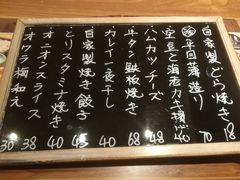 自家製どら焼き 18
平目薄造り 70
空豆と海老カキ揚げ 46
ハムカツチーズ 48
牛タン鉄板焼き 68
カレイ一夜干し 40
自家製焼き餃子 45
とりスタミナ焼き 40
オニオンスライス 38
オクラ梅和え 30